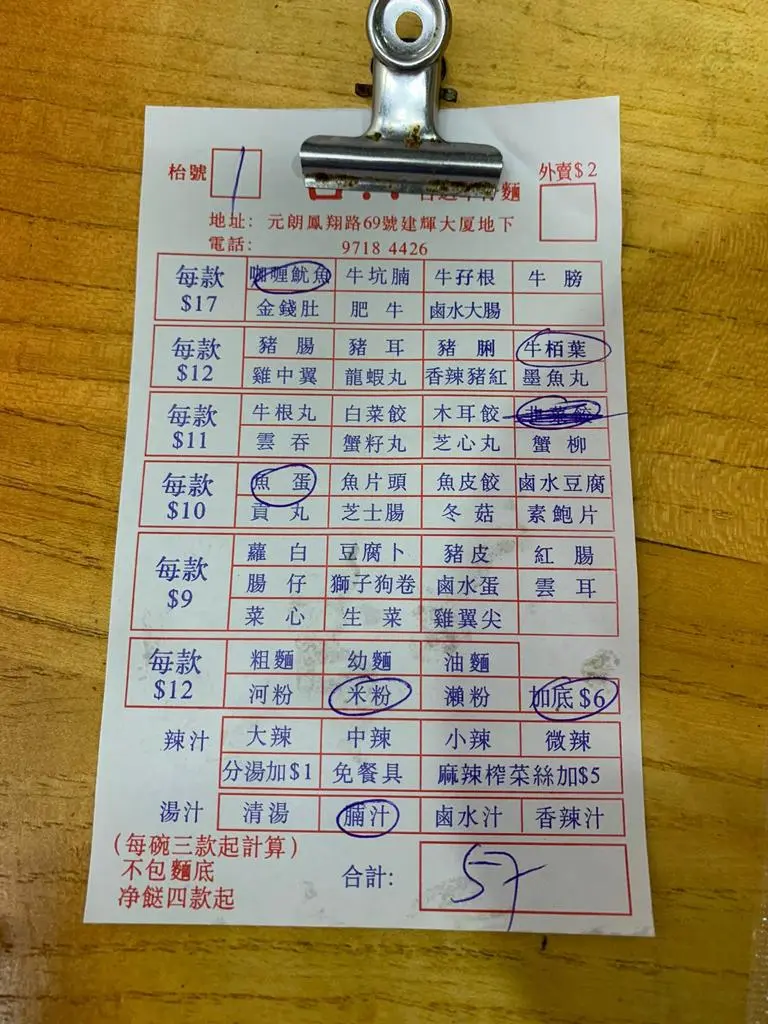 枱號 1 外賣$2
地址: 元朗鳳翔路69號建輝大厦地下
電話: 9718 4426
每款 $17
咖喱魷魚 牛坑腩 牛孖根 牛膀
金錢肚 肥牛 鹵水大腸
每款 $12
豬腸 豬耳 豬脷 牛栢葉
雞中翼 龍蝦丸 香辣豬紅 墨魚丸
每款 $11
牛根丸 白菜餃 木耳餃
雲吞 蟹籽丸 芝心丸 蟹柳
每款 $10
魚蛋 魚片頭 魚皮餃 鹵水豆腐
貢丸 芝士腸 冬菇 素鮑片
每款 $9
蘿白 豆腐卜 豬皮 紅腸
腸仔 獅子狗卷 鹵水蛋 雲耳
菜心 生菜 雞翼尖
每款 $12
粗麵 幼麵 油麵
河粉 米粉 瀨粉 加底$6
辣汁 大辣 中辣 小辣 微辣
分湯加$1 免餐具 麻辣榨菜絲加$5
湯汁 清湯 腩汁 鹵水汁 香辣汁
(每碗三款起計算)
不包麵底
净餸四款起
合計: 57